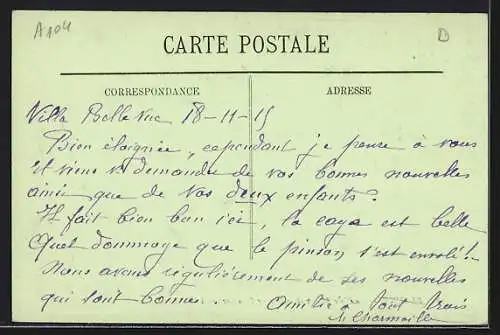 A104
D
CARTE POSTALE
CORRESPONDANCE
ADRESSE
Villa Bellevue 18-11-15
Bien éloignée, cependant je pense à vous
et viens vs demander de vos bonnes nouvelles
ainsi que de vos deux enfants?
Il fait bien bon ici, la caya est belle
Quel dommage que le pinson s'est envolé!-
Nous avons régulièrement de ses nouvelles
qui sont bonnes. Amitiés